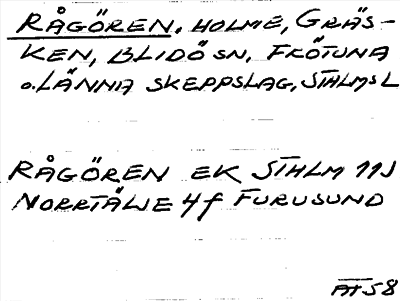 RÅGÖREN, HOLME, GRÄS-
KEN, BLIDÖ SN, FRÖTUNA
o. LÄNNA SKEPPSLAG, STHLMS L
RÅGÖREN EK STHLM 11J
NORRTÄLJE 4f FURUSUND
AT58